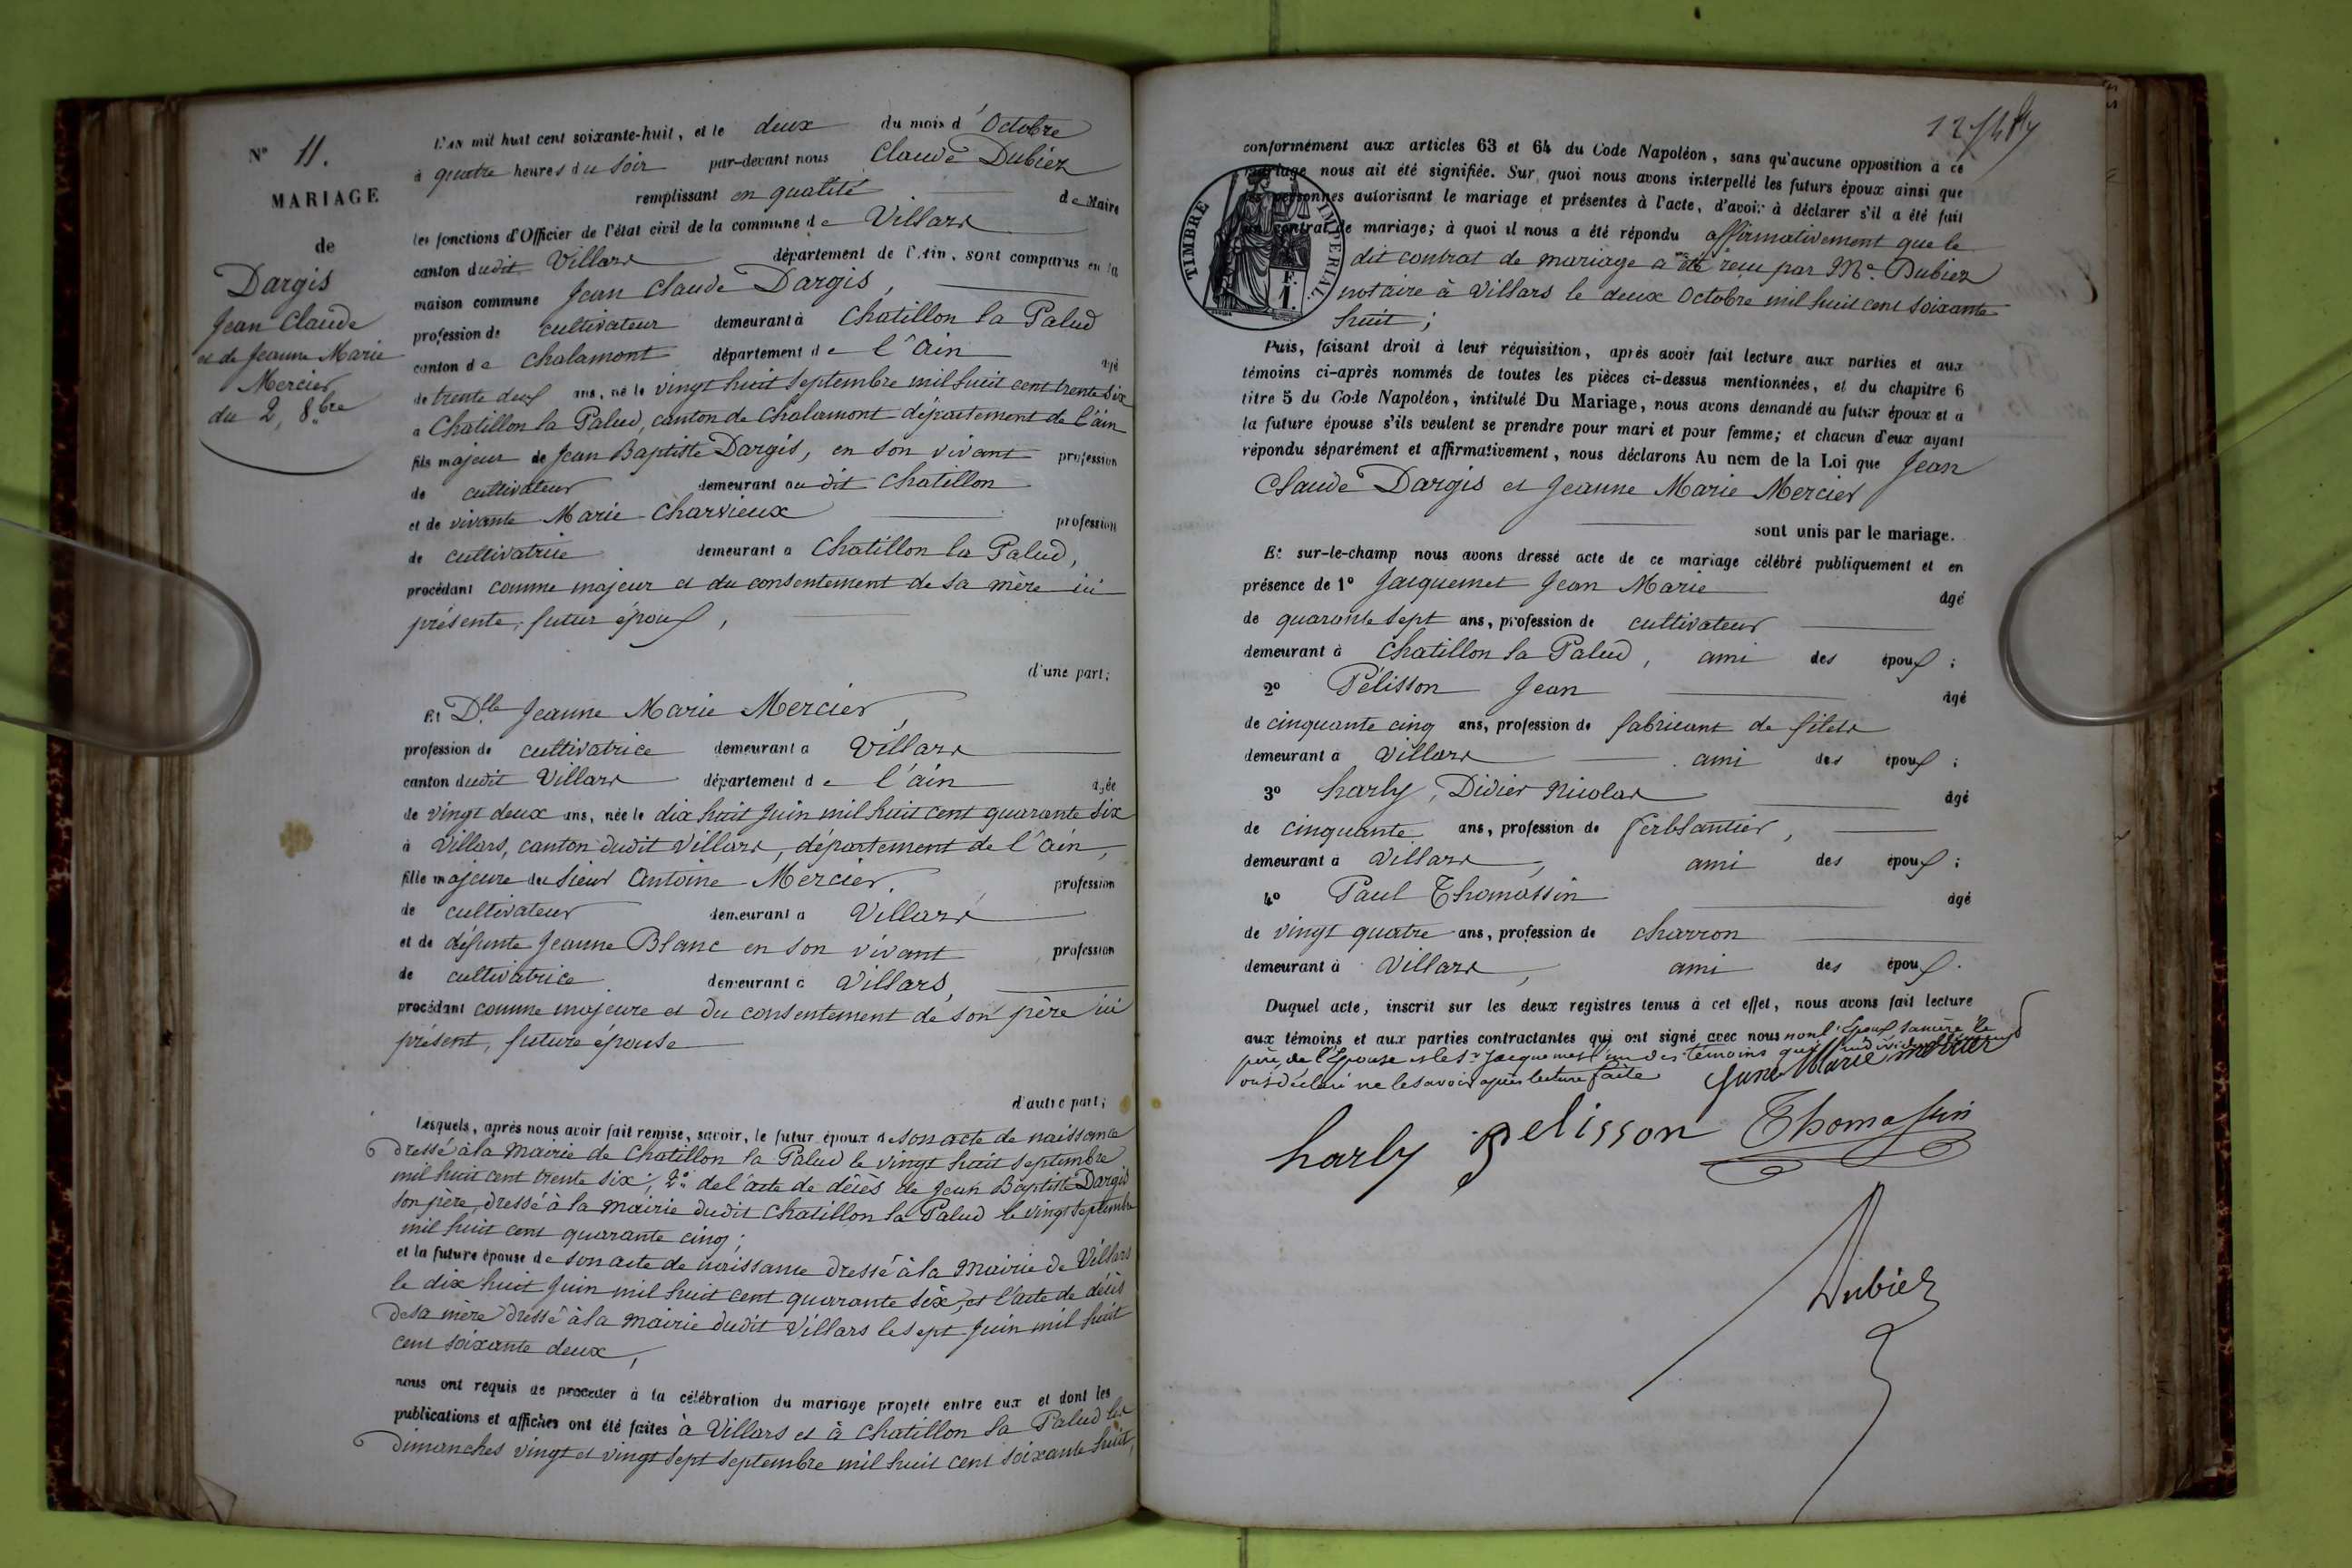 N° 11.
MARIAGE
de
Dargis
Jean Claude
et de Jeanne Marie
Mercier
du 2, 8.bre
L'an mil huit cent soixante-huit, et le deux du mois d'Octobre
à quatre heures du soir par-devant nous Claude Dubiez
remplissant en qualité de Maire
les fonctions d'Officier de l'état civil de la commune de Villars
canton dudit Villars département de l'Ain, sont comparus en la
maison commune Jean Claude Dargis,
profession de cultivateur demeurant à Chatillon la Palud
canton de Chalamont département de l'Ain agé
de trente deux ans, né le vingt huit Septembre mil huit cent trente six
a Chatillon la Palud, canton de Chalamont département de l'ain
fils majeur de Jean Baptiste Dargis, en son vivant profession
de cultivateur demeurant au dit Chatillon
et de vivante Marie Charvieux profession
de cultivatrice demeurant a Chatillon la Palud,
procédant comme majeur et du consentement de sa mère ici
présente, futur époux,
d'une part;
Et Dlle Jeanne Marie Mercier,
profession de cultivatrice demeurant a Villars
canton dudit Villars département de l'ain agée
de vingt deux ans, née le dix huit Juin mil huit cent quarante six
à Villars, canton dudit Villars, département de l'ain,
fille majeure du Sieur Antoine Mercier, profession
de cultivateur demeurant a Villars
et de défunte Jeanne Blanc en son vivant profession
de cultivatrice demeurant à Villars,
procédant comme majeure et du consentement de son père ici
présent, future épouse
d'autre part;
Lesquels, après nous avoir fait remise, savoir, le futur époux de son acte de naissance
dressé à la Mairie de Chatillon la Palud le vingt huit Septembre
mil huit cent trente six; 2.° de l'acte de décès de Jean Baptiste Dargis
son père, dressé à la mairie dudit Chatillon la Palud le vingt Septembre
mil huit cent quarante cinq;
et la future épouse de son acte de naissance dressé à la Mairie de Villars
le dix huit Juin mil huit cent quarante six, et l'acte de décès
de sa mère dressé à la Mairie dudit Villars le sept Juin mil huit
cent soixante deux,
nous ont requis de procéder à la célébration du mariage projeté entre eux et dont les
publications et affiches ont été faites à Villars et à Chatillon la Palud les
Dimanches vingt et vingt sept Septembre mil huit cent soixante huit,
conformément aux articles 63 et 64 du Code Napoléon, sans qu'aucune opposition à ce
mariage nous ait été signifiée. Sur quoi nous avons interpellé les futurs époux ainsi que
les personnes autorisant le mariage et présentes à l'acte, d'avoir à déclarer s'il a été fait
un contrat de mariage; à quoi il nous a été répondu affirmativement que le
dit contrat de mariage a été reçu par Me. Dubiez
notaire à Villars le deux Octobre mil huit cent soixante
huit;
TIMBRE IMPERIAL
F.
1.
Puis, faisant droit à leur réquisition, après avoir fait lecture aux parties et aux
témoins ci-après nommés de toutes les pièces ci-dessus mentionnées, et du chapitre 6
titre 5 du Code Napoléon, intitulé Du Mariage, nous avons demandé au futur époux et a
la future épouse s'ils veulent se prendre pour mari et pour femme; et chacun d'eux ayant
répondu séparément et affirmativement, nous déclarons Au nom de la Loi que Jean
Claude Dargis et Jeanne Marie Mercier
sont unis par le mariage.
Et sur-le-champ nous avons dressé acte de ce mariage célébré publiquement et en
présence de 1° Jacquemet Jean Marie agé
de quarante sept ans, profession de cultivateur
demeurant à Chatillon la Palud, ami des époux;
2° Pélisson Jean agé
de cinquante cinq ans, profession de fabricant de filets
demeurant a Villars ami des époux;
3° harly, Didier Nicolas agé
de cinquante ans, profession de ferblantier,
demeurant à Villars, ami des époux;
4° Paul Thomassin agé
de vingt quatre ans, profession de charron
demeurant à Villars, ami des époux.
Duquel acte, inscrit sur les deux registres tenus à cet effet, nous avons fait lecture
aux témoins et aux parties contractantes qui ont signé avec nous non l'Epoux sa mère le
père de l'Epouse et le Sr Jacquemet un des témoins qui
ont déclaré ne le savoir après lecture faite
Jane Marie mercier
harly pelisson Thomassin
Dubiez